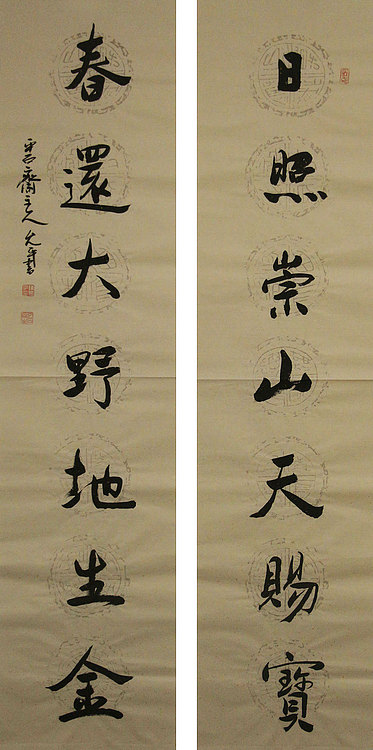 日照崇山天賜寶
春還大野地生金
齋主人